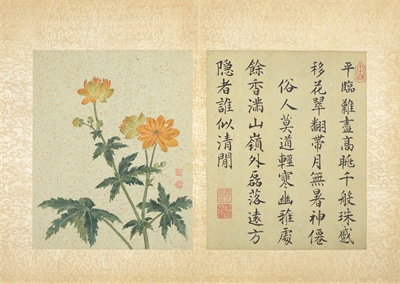 平臨難盡高眺千般珠感
移花翠翻帶月無暑神僊
俗人莫道輕寒幽雅處
餘香滿山嶺外磊落遠方
隠者誰似清閒